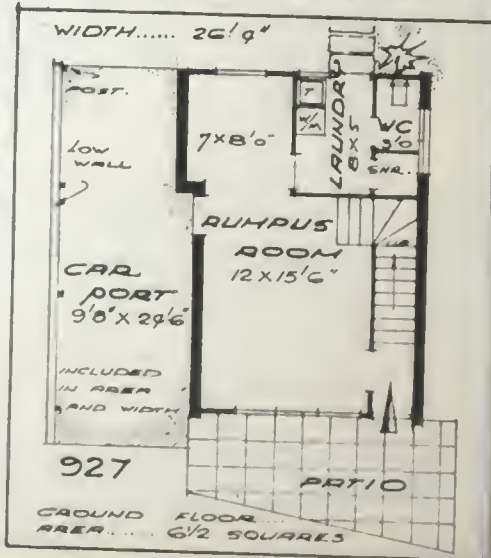 WIDTH...... 26'9"
POST.
LOW
WALL
7X8'0"
T
W/M
LAUNDRY
8X5
WC
3'0
SHR.
RUMPUS
ROOM
12X15'6"
CAR
PORT
9'8"X24'6"
INCLUDED
IN AREA
AND WIDTH
927
PATIO
GROUND FLOOR....
AREA..... 6 1/2 SQUARES